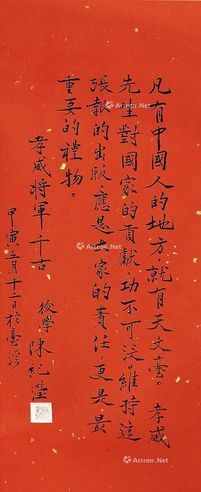 凡有中國人的地方，就有天文臺。孝威
先生對國家的貢獻，功不可沒。維持這
張報的出版，應是國家的責任，更是最
重要的禮物。
孝威將軍千古
後學陳紀瀅
甲寅二月十二日於臺灣
Artron.Net